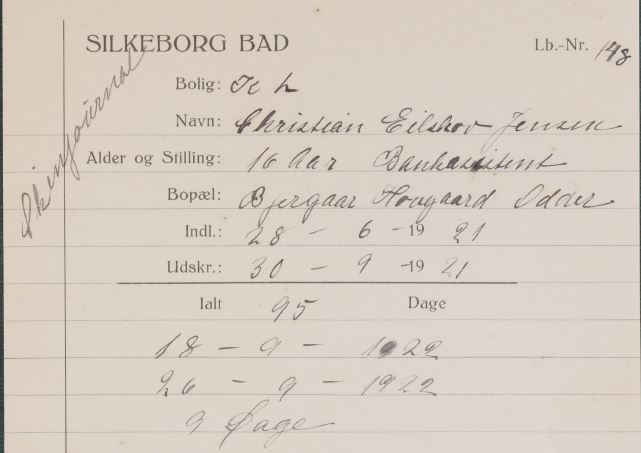 SILKEBORG BAD Lb.-Nr. 148
Skinjournal
Bolig: K L
Navn: Christian Eilskov Jensen
Alder og Stilling: 16 Aar Bankassistent
Bopæl: Bjergaar Hovgaard Odder
Indl.: 28 - 6 - 19 21
Udskr.: 30 - 9 - 19 21
Ialt 95 Dage
18 - 9 - 1922
26 - 9 - 1922
9 Dage